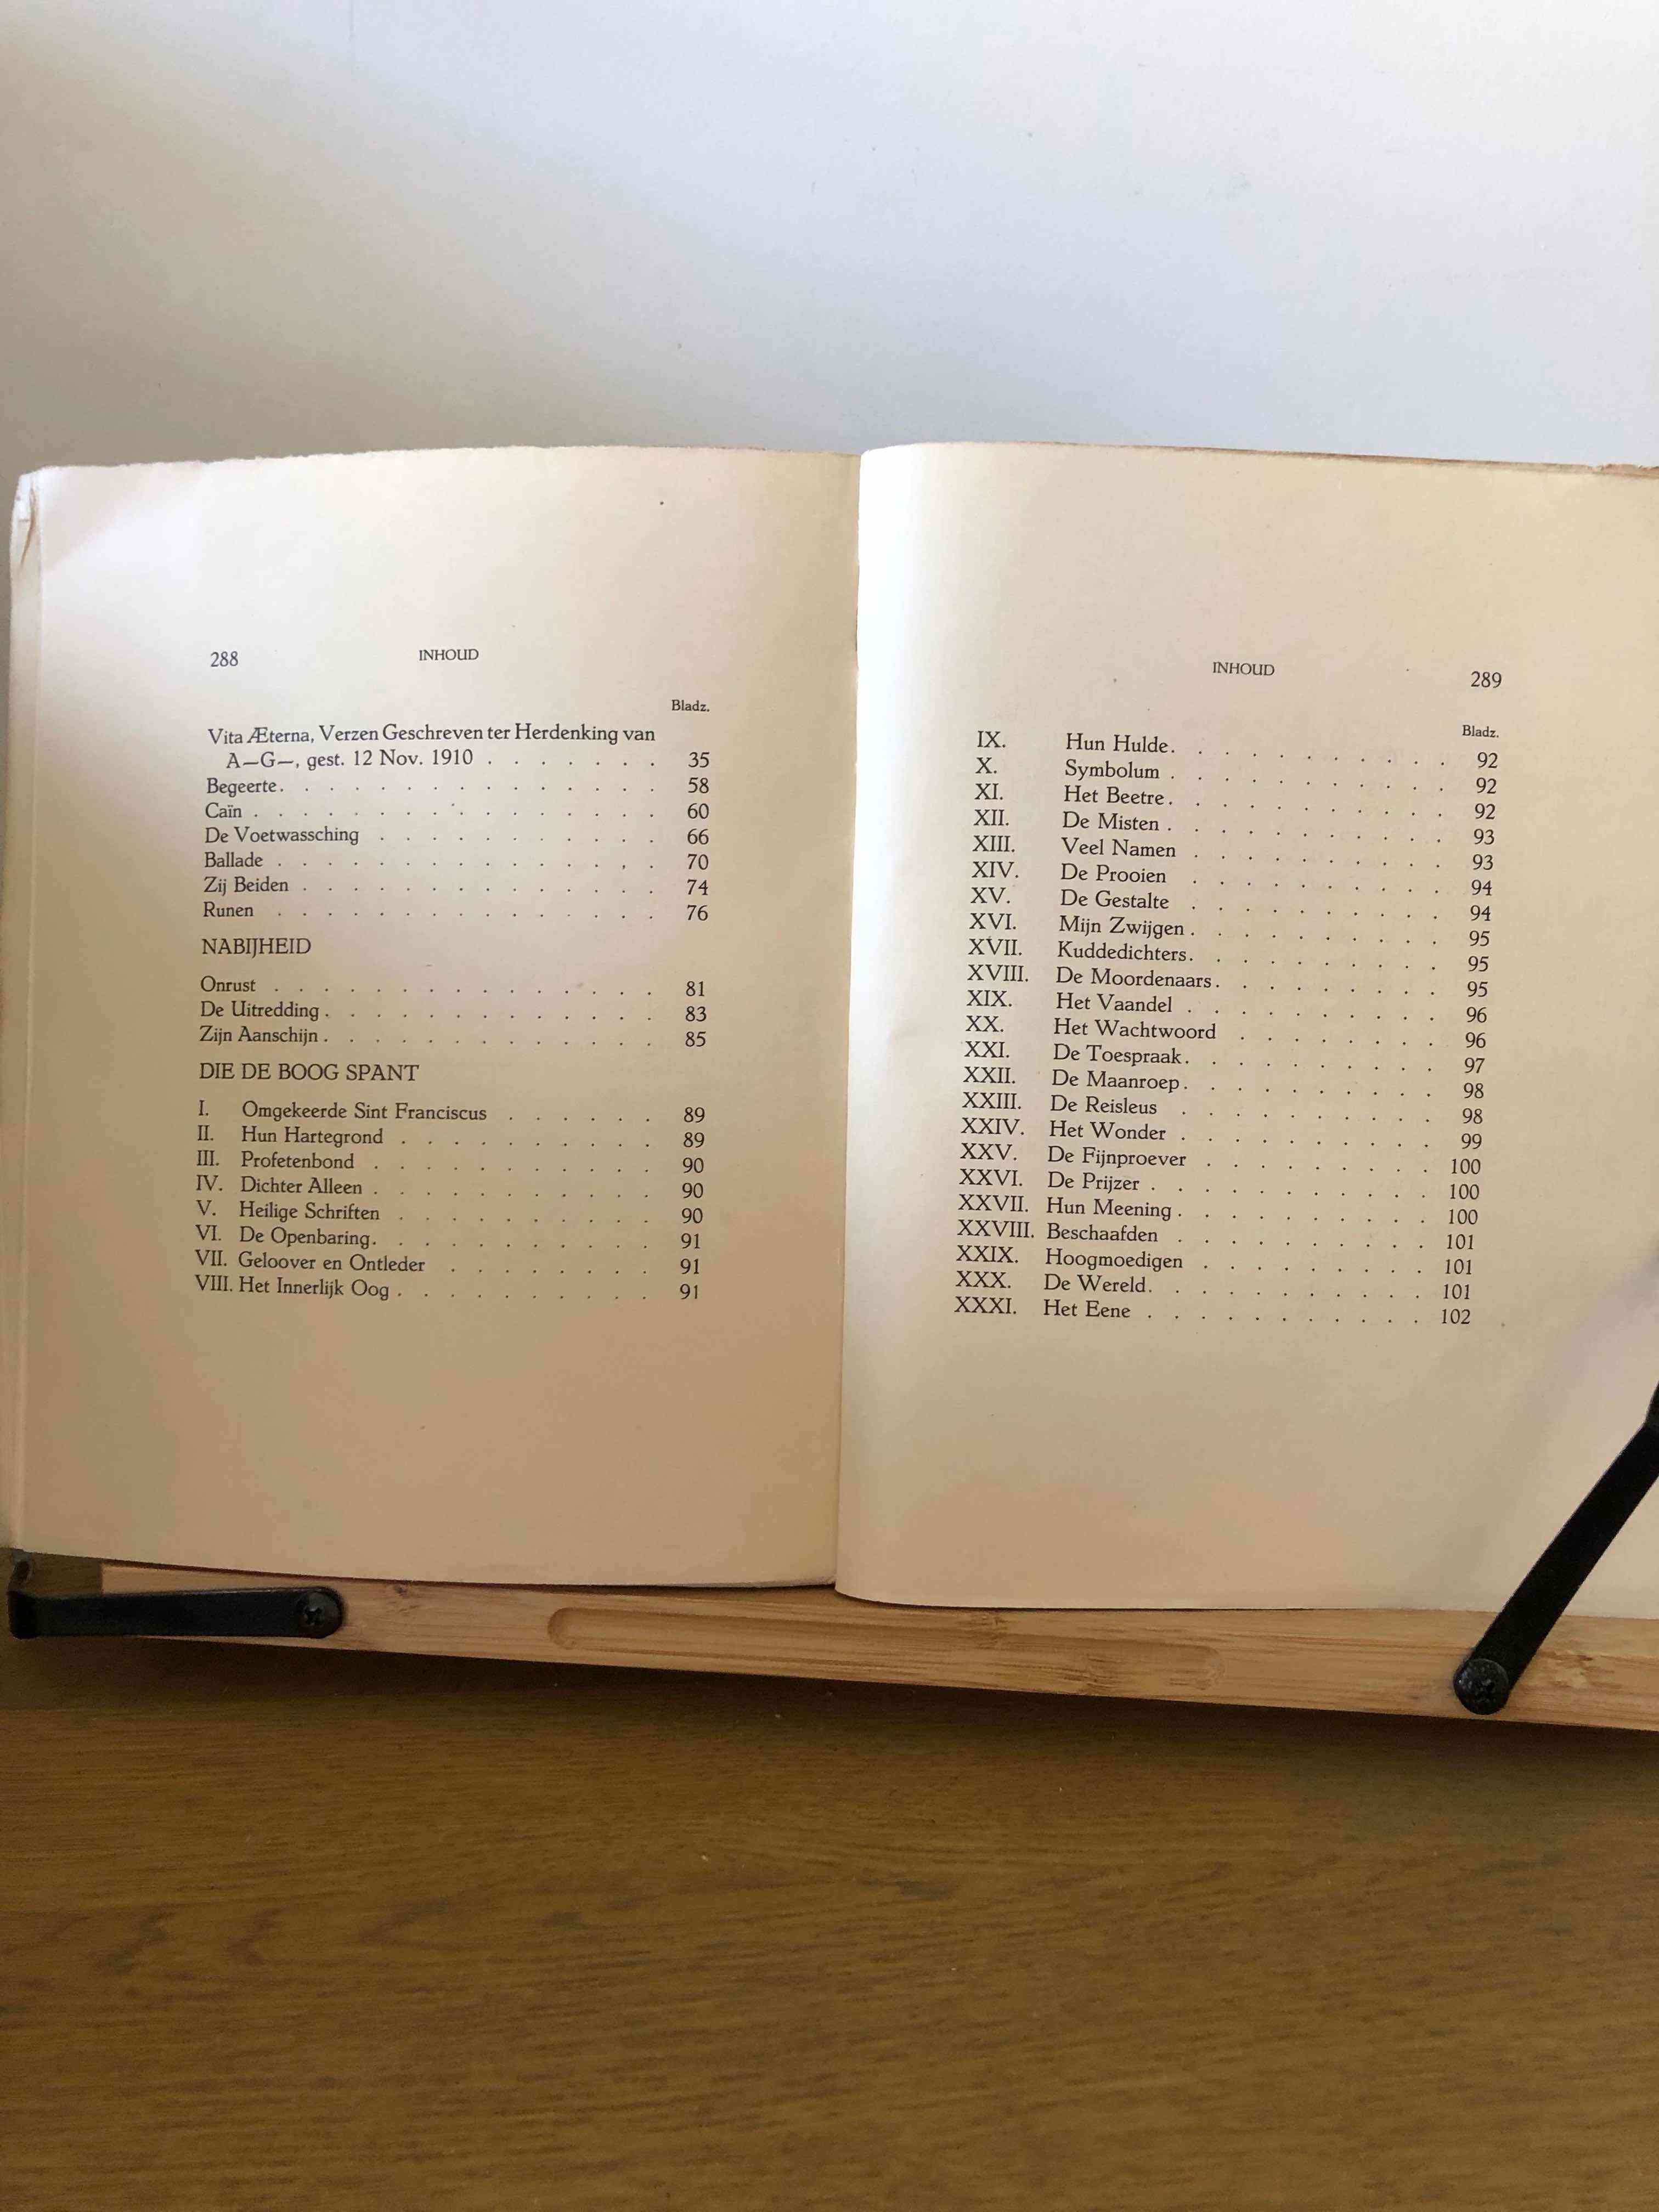 288 INHOUD
Bladz.
Vita Æterna, Verzen Geschreven ter Herdenking van
A—G—, gest. 12 Nov. 1910 . . . . . . . 35
Begeerte . . . . . . . . . . . . . . . 58
Caïn . . . . . . . . . . . . . . . . 60
De Voetwassching . . . . . . . . . . . 66
Ballade . . . . . . . . . . . . . . . 70
Zij Beiden . . . . . . . . . . . . . . 74
Runen . . . . . . . . . . . . . . . 76
NABIJHEID
Onrust . . . . . . . . . . . . . . . 81
De Uitredding . . . . . . . . . . . . . 83
Zijn Aanschijn . . . . . . . . . . . . . 85
DIE DE BOOG SPANT
I. Omgekeerde Sint Franciscus . . . . . . 89
II. Hun Hartegrond . . . . . . . . . . 89
III. Profetenbond . . . . . . . . . . . 90
IV. Dichter Alleen . . . . . . . . . . . 90
V. Heilige Schriften . . . . . . . . . . 90
VI. De Openbaring . . . . . . . . . . . 91
VII. Geloover en Ontleder . . . . . . . . 91
VIII. Het Innerlijk Oog . . . . . . . . . . 91
INHOUD 289
Bladz.
IX. Hun Hulde . . . . . . . . . . . 92
X. Symbolum . . . . . . . . . . . 92
XI. Het Beetre . . . . . . . . . . . 92
XII. De Misten . . . . . . . . . . . 93
XIII. Veel Namen . . . . . . . . . . 93
XIV. De Prooien . . . . . . . . . . 94
XV. De Gestalte . . . . . . . . . . 94
XVI. Mijn Zwijgen . . . . . . . . . . 95
XVII. Kuddedichters . . . . . . . . . . 95
XVIII. De Moordenaars . . . . . . . . . 95
XIX. Het Vaandel . . . . . . . . . . 96
XX. Het Wachtwoord . . . . . . . . 96
XXI. De Toespraak . . . . . . . . . . 97
XXII. De Maanroep . . . . . . . . . . 98
XXIII. De Reisleus . . . . . . . . . . 98
XXIV. Het Wonder . . . . . . . . . . 99
XXV. De Fijnproever . . . . . . . . . 100
XXVI. De Prijzer . . . . . . . . . . . 100
XXVII. Hun Meening . . . . . . . . . . 100
XXVIII. Beschaafden . . . . . . . . . . 101
XXIX. Hoogmoedigen . . . . . . . . . 101
XXX. De Wereld . . . . . . . . . . . 101
XXXI. Het Eene . . . . . . . . . . . 102